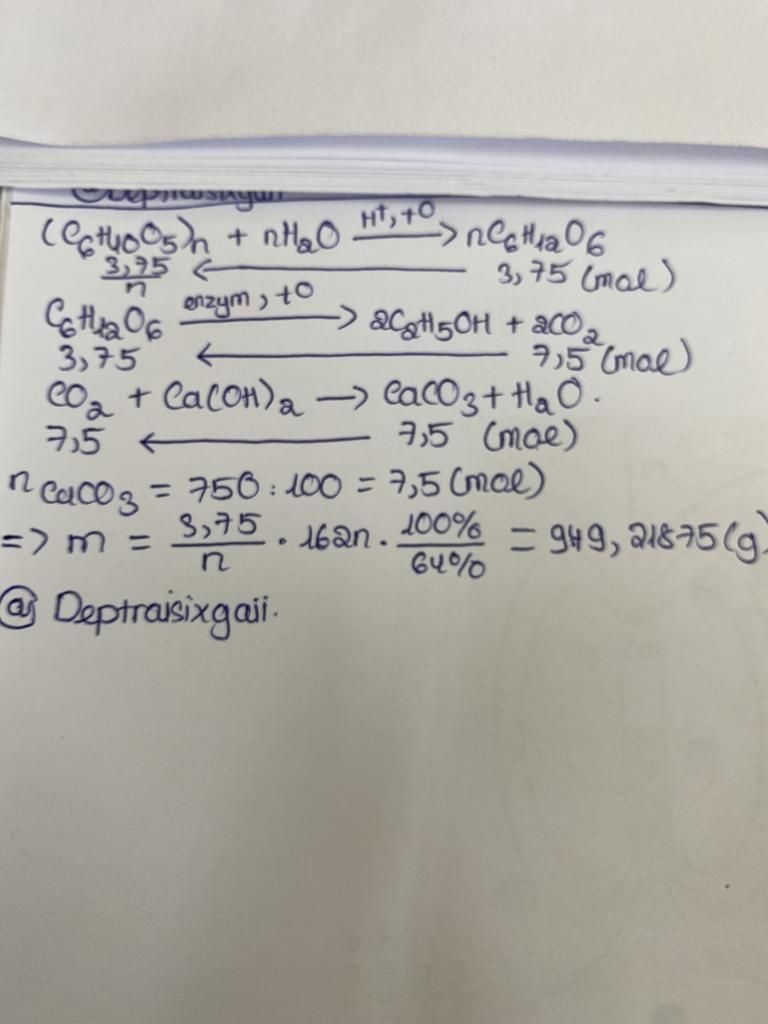 @Deptraisixgaii
(C6H10O5)n + nH2O H+, t0 → nC6H12O6
3,75/n ← 3,75 (mol)
C6H12O6 enzym, t0 → 2C2H5OH + 2CO2
3,75 ← 7,5 (mol)
CO2 + Ca(OH)2 → CaCO3 + H2O.
7,5 ← 7,5 (mol)
n CaCO3 = 750 : 100 = 7,5 (mol)
=> m = 3,75/n . 162n . 100%/64% = 949,21875 (g)
@ Deptraisixgaii.